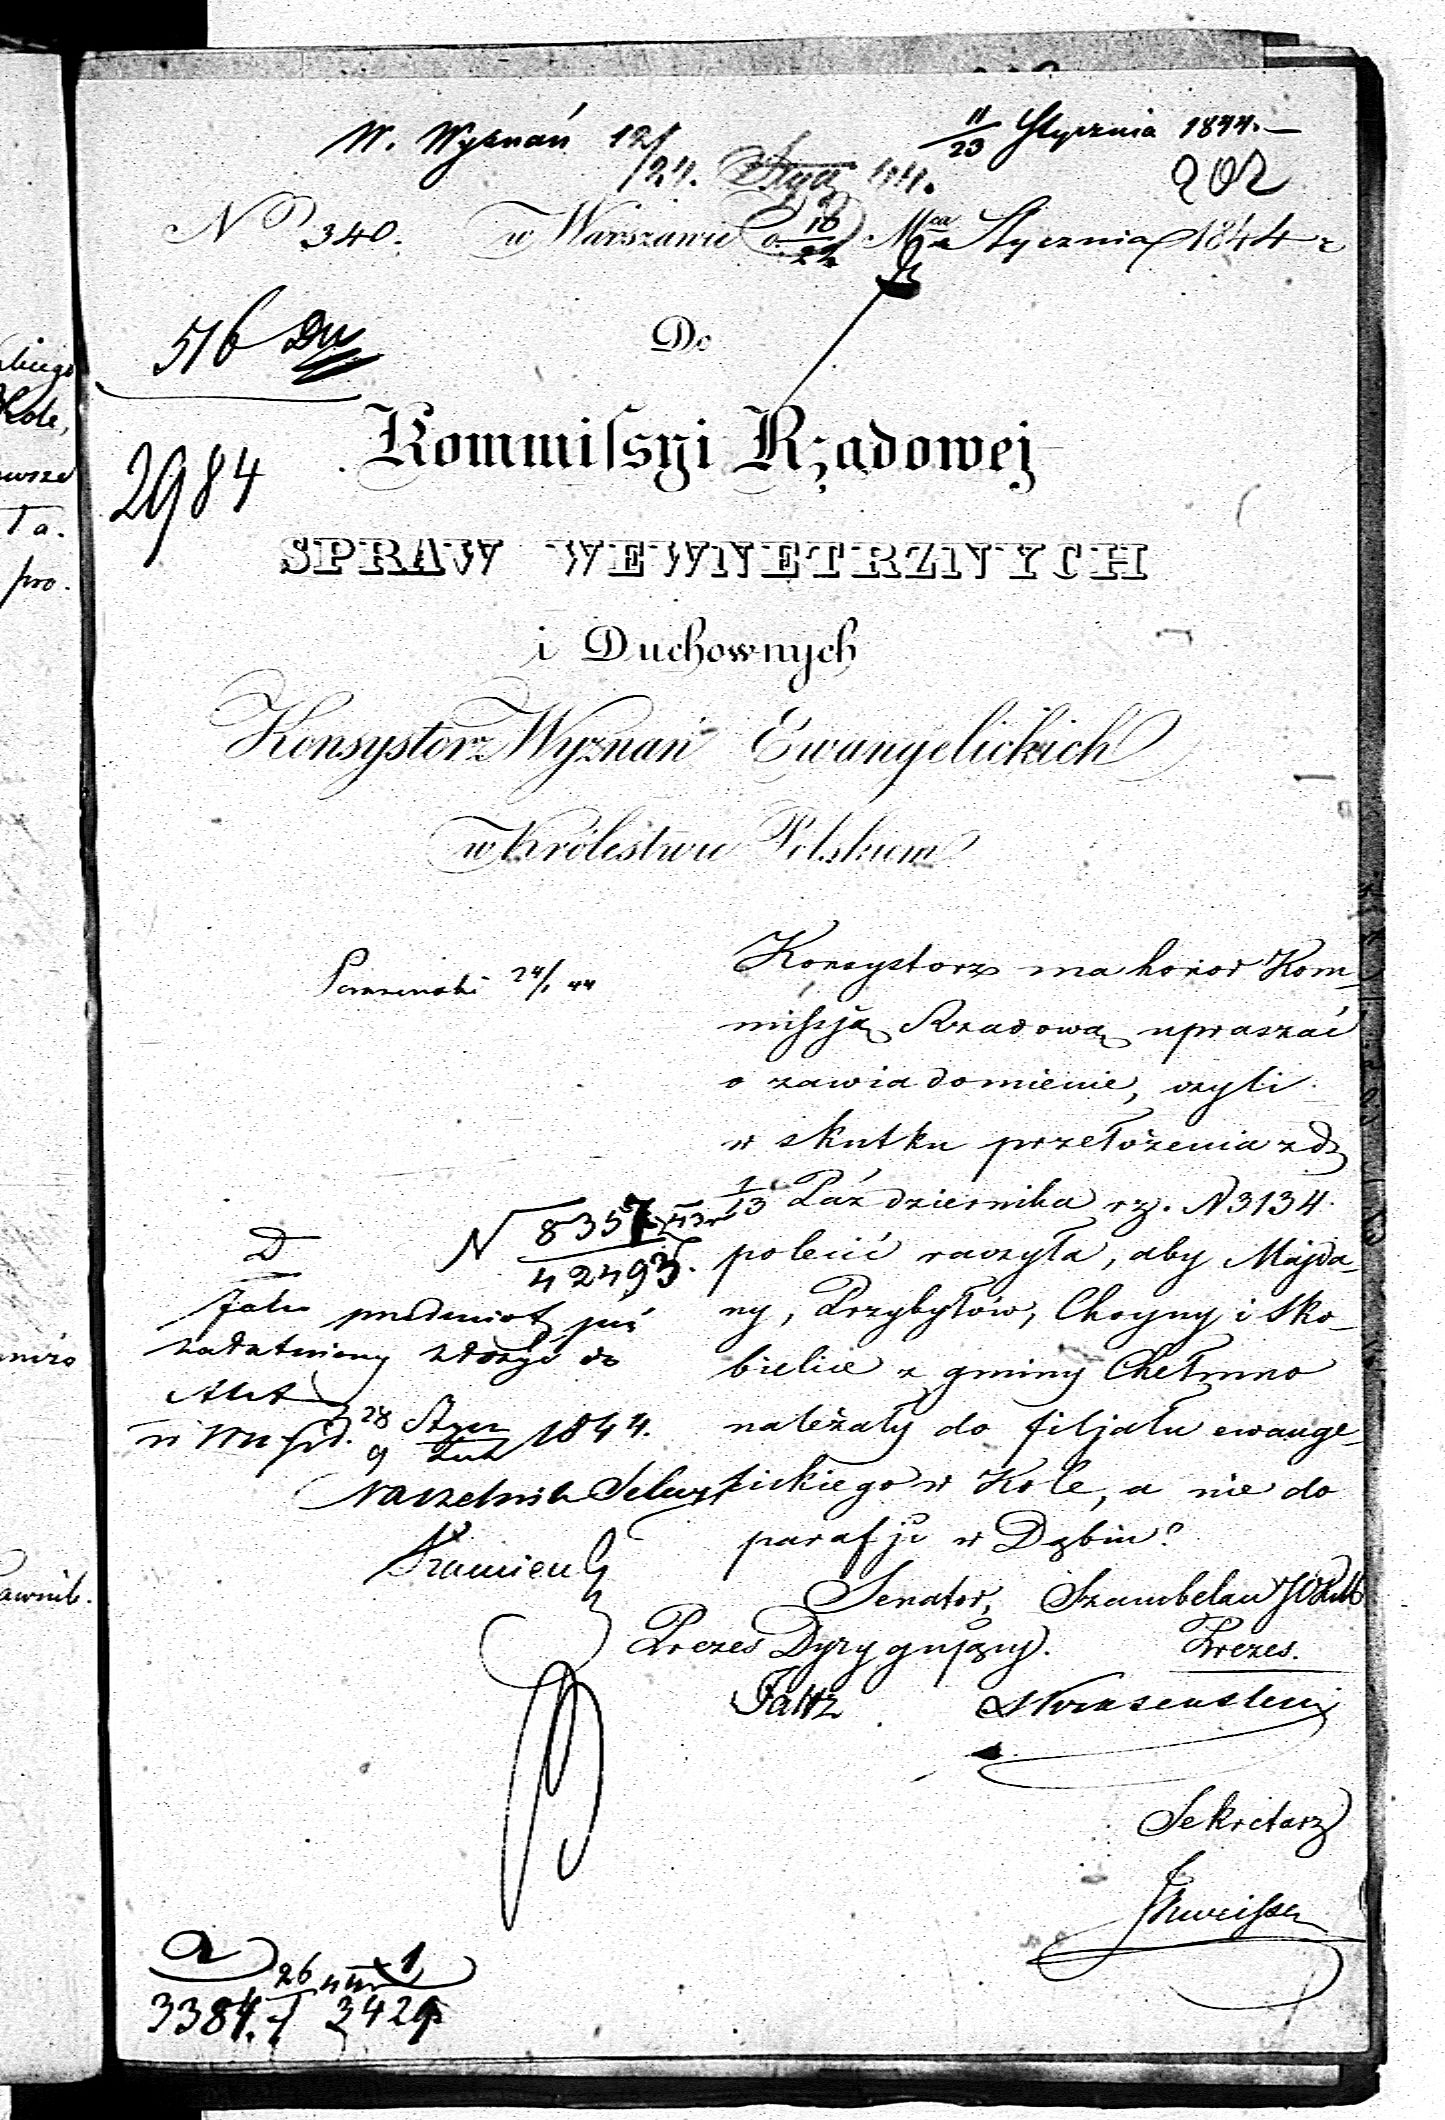 W. Wyznań 12/24. Stycz 44.
11/23 Stycznia 1844.
202
No 340. w Warszawie d. 10/22 Mca Stycznia 1844 r
516 Du
Do
2984
Kommissyi Rządowej
SPRAW WEWNETRZNYCH
i Duchownych
Konsystorz Wyznań Ewangelickich
w Królestwie Polskiem
24/1 44
Konsystorz ma honor Kom-
missją Rządową upraszać
o zawiadomienie, czyli
w skutku przełożenia z d.
1/13 Października r.z. N 3134
polecić raczyła, aby Majda-
ny, Przybyłów, Choyny i Sko-
bielice z gminy Chełmno
należały do filjału ewange-
lickiego w Kole, a nie do
parafji w Dąbiu?
N 8357/42493. 43 r
D
Jako przedmiot już
załatwiony złożyć do
Akt
28 Stycz 1844.
9 Lut
Naczelnik Sekcyi
Senator, Szambelan
Prezes Dyrygujący. Prezes.
Sekretarz
3384. 26